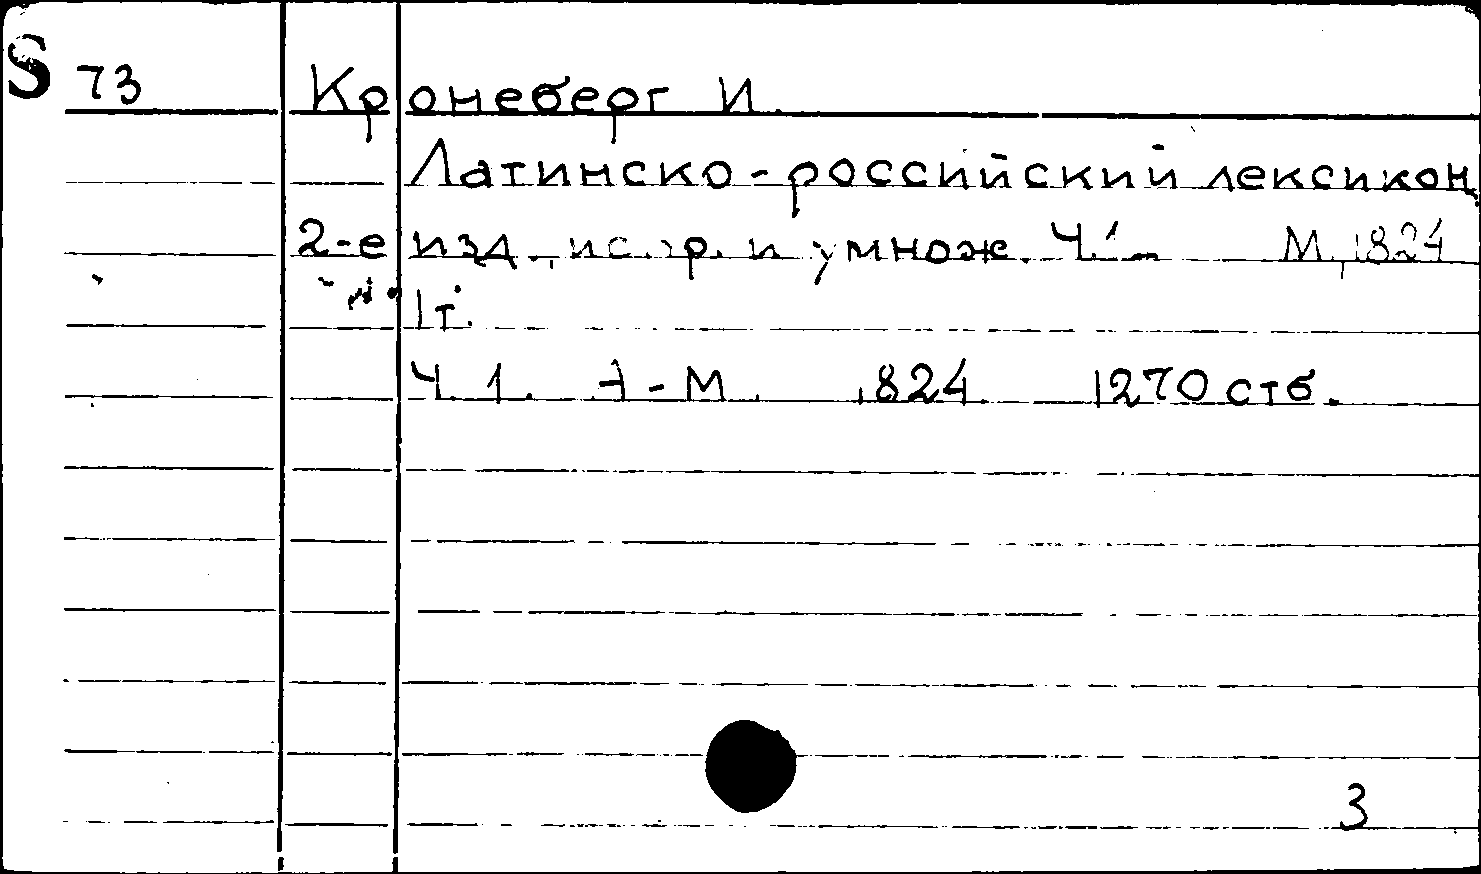 S 73 Кронеберг И.
Латинско-российский лексикон
2-е изд., испр. и умнож. Ч.1- М., 1824
1т.
Ч. 1. A-M. 1824. 1270 стб.
3